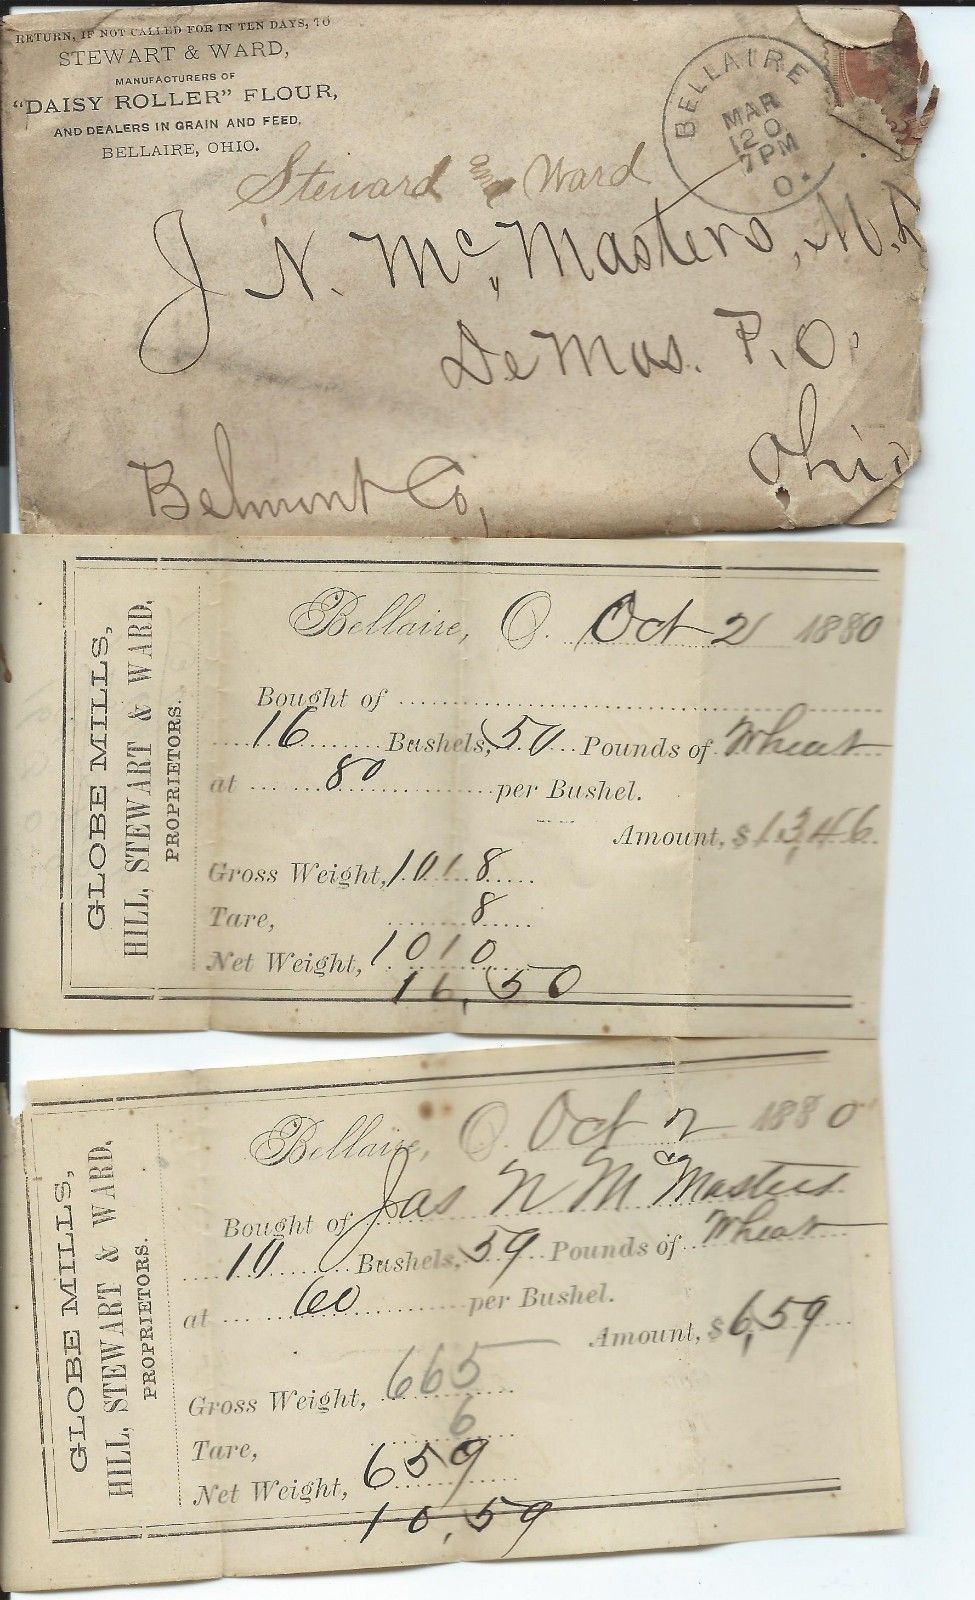 RETURN, IF NOT CALLED FOR IN TEN DAYS, TO
STEWART & WARD,
MANUFACTURERS OF
"DAISY ROLLER" FLOUR,
AND DEALERS IN GRAIN AND FEED,
BELLAIRE, OHIO.
BELLAIRE
MAR
20
7PM
O.
Steward and Ward
J N. Mc, Masters, M.D
DeMos. P.O.
Belmont Co,
Ohio
GLOBE MILLS,
HILL, STEWART & WARD,
PROPRIETORS.
Bellaire, O. Oct 2 1880
Bought of
16 Bushels, 50 Pounds of Wheat
at 80 per Bushel.
Amount, $13,46
Gross Weight, 1018
Tare, 8
Net Weight, 1010
16,50
GLOBE MILLS,
HILL, STEWART & WARD,
PROPRIETORS.
Bellaire, O. Oct 2 1880
Bought of Jas N McMasters
10 Bushels, 59 Pounds of Wheat
at 60 per Bushel.
Amount, $6,59
Gross Weight, 665
Tare, 6
Net Weight, 659
10,59